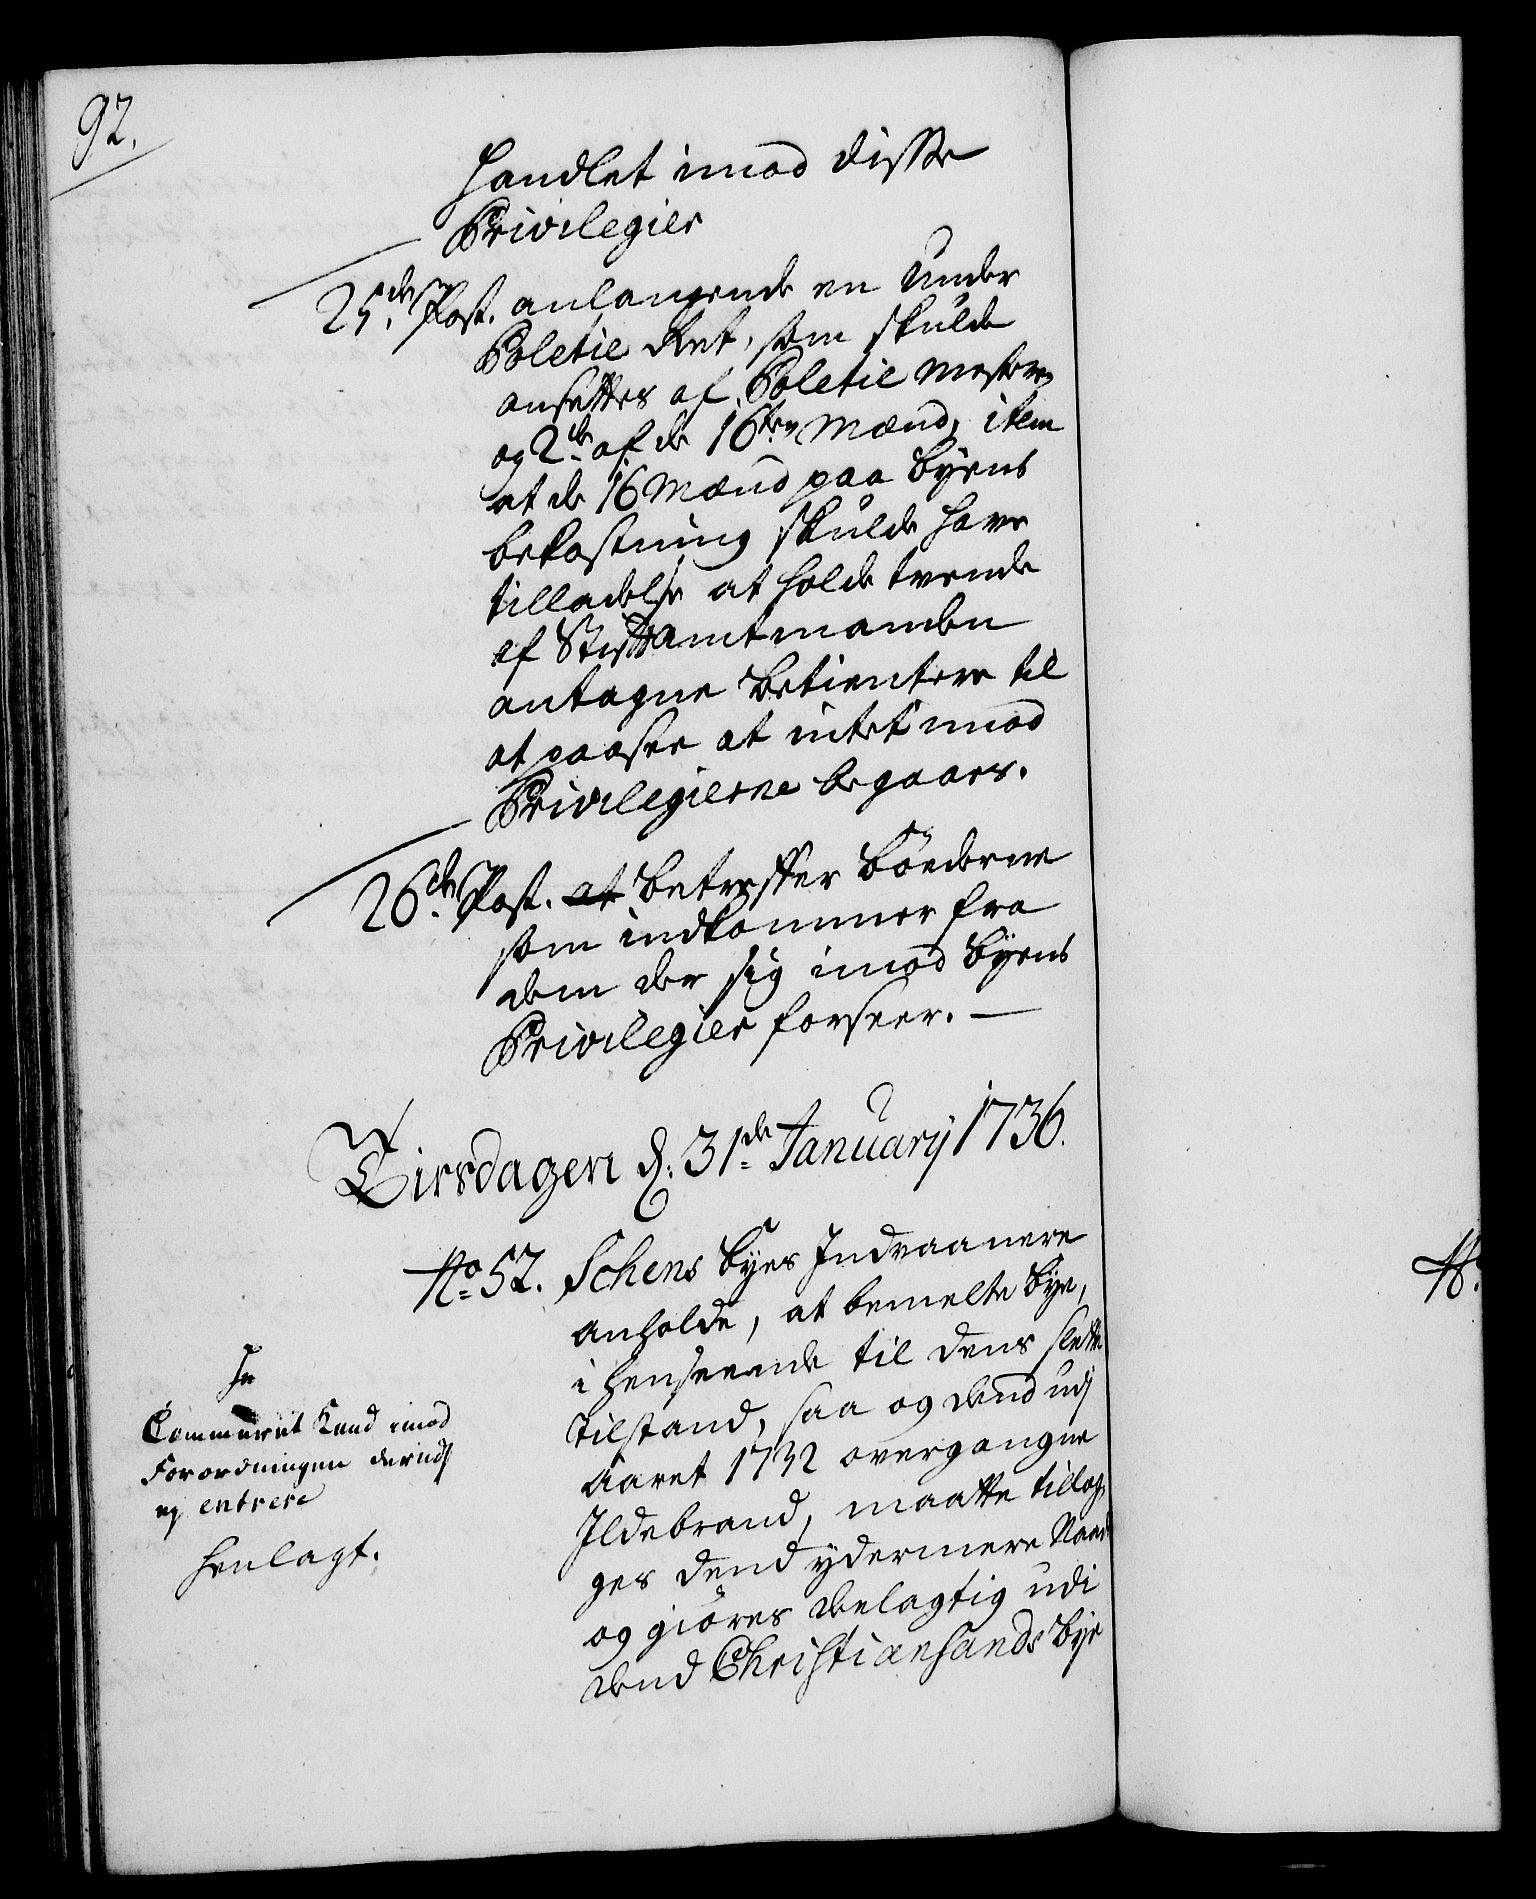 92.
handlet imod disse
Privilegier
25de Post. anlangende en Under
Poletie Ret, som skulde
ansættes af Poletie Mesteren
og 2de af de 16ten Mænd, item
at de 16 Mænd paa Byens
bekostning skulde have
tilladelse at holde tvende
af Stiftamtmanden
antagne Betientere til
at paasee at intet imod
Privilegierne begaaes.
26de Post. at betreffer Böederne
som indkommer fra
dem der sig imod Byens
Privilegier forseer. —
Tirsdagen d: 31de January 1736.
No 52. Schens Byes Indvaanere
anholde, at bemelte Bye,
i henseende til dens slette
Tilstand, saa og dend udj
Aaret 1732 overgangne
Ildebrand, maatte tillæg-
ges dend ydermere Naade
og giöres deelagtig udi
dend Christiansands Bye
Commerset Kand imod
Forordningen derudj
ej entrere
Henlagt.